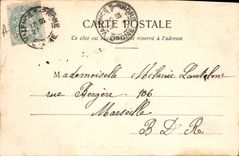 CARTE POSTALE
Ce côté est exclusivement réservé à l'adresse
Mademoiselle Mélanie
rue Bergère 106
Marseille
B D R